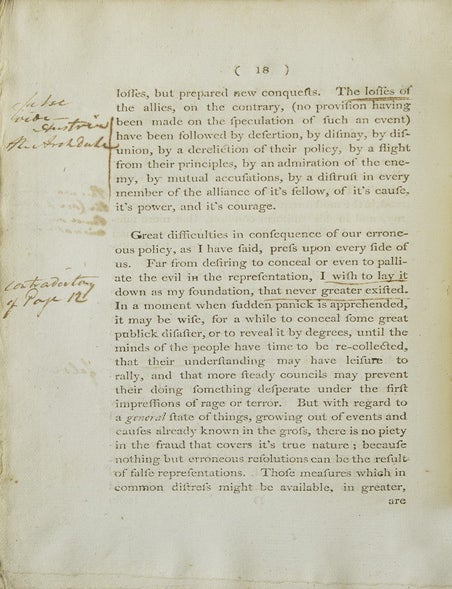 ( 18 )
loſſes, but prepared new conqueſts. The loſſes of
the allies, on the contrary, (no proviſion having
been made on the ſpeculation of ſuch an event)
have been followed by deſertion, by diſmay, by diſ-
union, by a dereliction of their policy, by a flight
from their principles, by an admiration of the ene-
my, by mutual accuſations, by a diſtruſt in every
member of the alliance of it's fellow, of it's cauſe,
it's power, and it's courage.
Great difficulties in conſequence of our errone-
ous policy, as I have ſaid, preſs upon every ſide of
us. Far from deſiring to conceal or even to palli-
ate the evil in the repreſentation, I wiſh to lay it
down as my foundation, that never greater exiſted.
In a moment when ſudden panick is apprehended,
it may be wiſe, for a while to conceal ſome great
publick diſaſter, or to reveal it by degrees, until the
minds of the people have time to be re-collected,
that their underſtanding may have leiſure to
rally, and that more ſteady councils may prevent
their doing ſomething deſperate under the firſt
impreſſions of rage or terror. But with regard to
a general ſtate of things, growing out of events and
cauſes already known in the groſs, there is no piety
in the fraud that covers it's true nature; becauſe
nothing but erroneous reſolutions can be the reſult
of falſe repreſentations. Thoſe meaſures which in
common diſtreſs might be available, in greater,
are
false
vide
Austria
the Archduke
contradictory
of Page 12